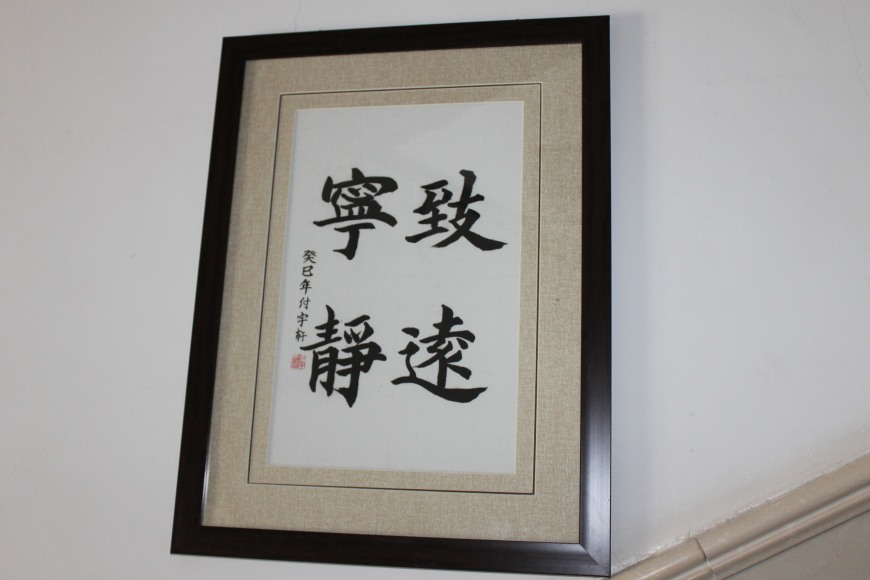 致遠
寧靜
癸巳年付宇軒